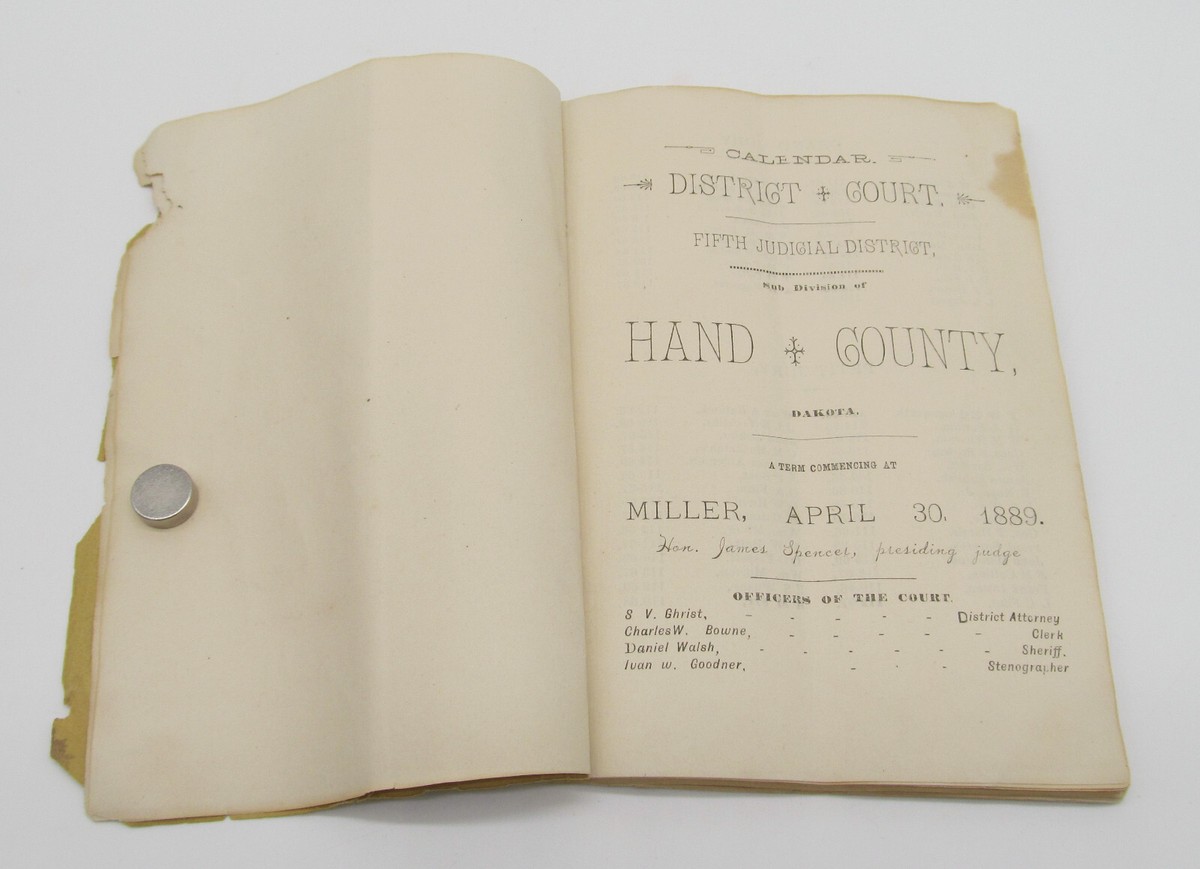 CALENDAR.
DISTRICT COURT.
FIFTH JUDICIAL DISTRICT,
Sub Division of
HAND COUNTY,
DAKOTA.
A TERM COMMENCING AT
MILLER, APRIL 30, 1889.
Hon. James Spencer, presiding judge
OFFICERS OF THE COURT.
S V. Ghrist, - - - - - District Attorney
CharlesW. Bowne, - - - - - Clerk
Daniel Walsh, - - - - - - Sheriff,
Ivan w. Goodner, - - - Stenographer